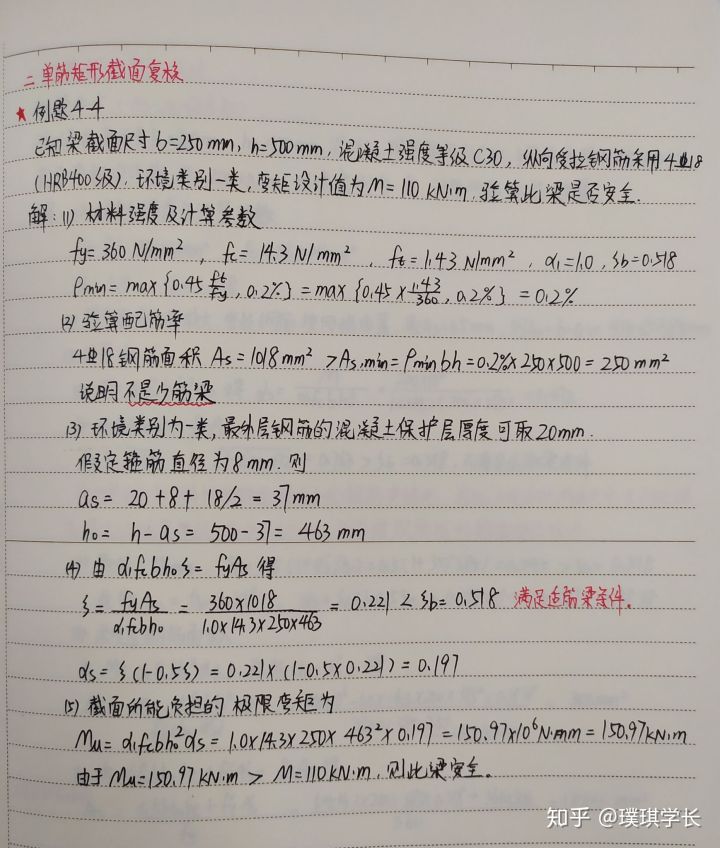 二.单筋矩形截面复核
★例题4-4
已知梁截面尺寸b=250mm, h=500mm, 混凝土强度等级C30, 纵向受拉钢筋采用4⏀18
(HRB400级). 环境类别一类, 弯矩设计值为M=110KN·m. 验算此梁是否安全.
解: (1) 材料强度及计算参数
fy=360N/mm², fc=14.3N/mm², ft=1.43N/mm², α₁=1.0, ξb=0.518
ρmin=max{0.45 ft/fy, 0.2%}=max{0.45×1.43/360, 0.2%}=0.2%
(2) 验算配筋率
4⏀18钢筋面积As=1018mm²>As,min=ρminbh=0.2%×250×500=250mm²
说明不是少筋梁
(3) 环境类别为一类, 最外层钢筋的混凝土保护层厚度可取20mm.
假定箍筋直径为8mm. 则
as=20+8+18/2=37mm
h₀=h-as=500-37=463mm
(4) 由α₁fcbh₀ξ=fyAs得
ξ=fyAs/α₁fcbh₀=360×1018/1.0×14.3×250×463=0.221<ξb=0.518 满足适筋梁条件.
αs=ξ(1-0.5ξ)=0.221×(1-0.5×0.221)=0.197
(5) 截面所能负担的极限弯矩为
Mu=α₁fcbh₀²αs=1.0×14.3×250×463²×0.197=150.97×10⁶N·mm=150.97KN·m
由于Mu=150.97KN·m>M=110KN·m, 则此梁安全。
知乎 @璞琪学长